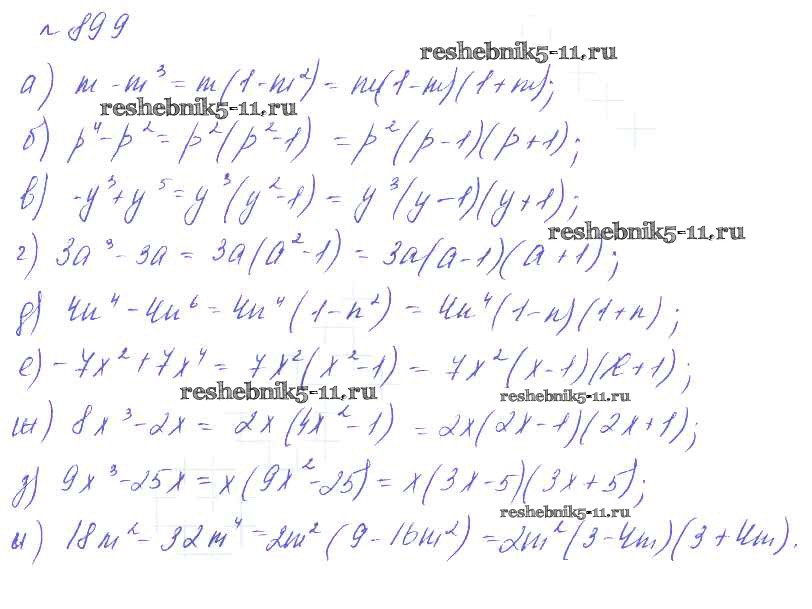 № 899
reshebnik5-11.ru
а) m - m³ = m(1-m²) = m(1-m)(1+m);
reshebnik5-11.ru
б) p⁴ - p² = p²(p²-1) = p²(p-1)(p+1);
в) -y³+y⁵ = y³(y²-1) = y³(y-1)(y+1);
reshebnik5-11.ru
г) 3a³ - 3a = 3a(a²-1) = 3a(a-1)(a+1);
д) 4n⁴ - 4n⁶ = 4n⁴(1-n²) = 4n⁴(1-n)(1+n);
е) -7x²+7x⁴ = 7x²(x²-1) = 7x²(x-1)(x+1);
reshebnik5-11.ru
reshebnik5-11.ru
ж) 8x³-2x = 2x(4x²-1) = 2x(2x-1)(2x+1);
з) 9x³-25x = x(9x²-25) = x(3x-5)(3x+5);
reshebnik5-11.ru
и) 18m² - 32m⁴ = 2m²(9-16m²) = 2m²(3-4m)(3+4m).